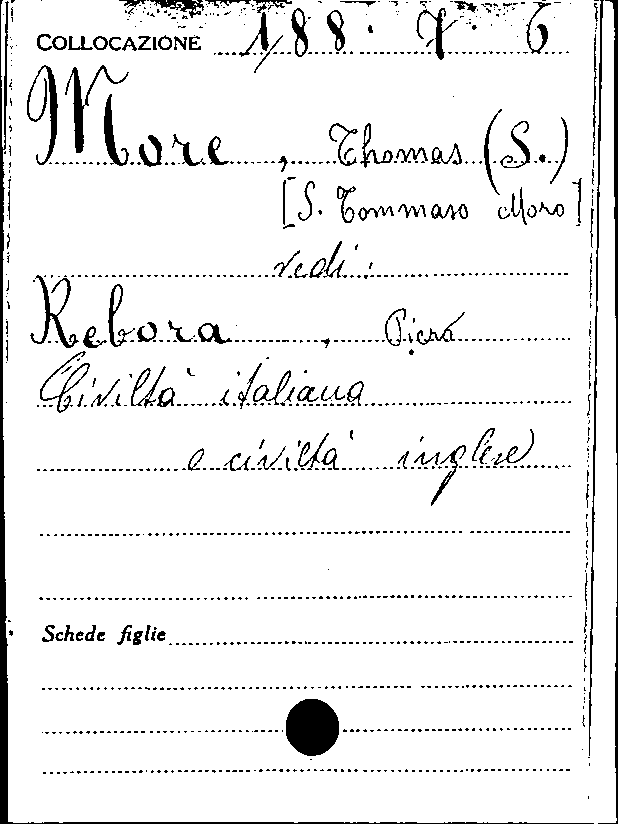 COLLOCAZIONE 188. 7. 6
More, Thomas (S.)
[S. Tommaso Moro]
vedi:
Rebora, Piero
Civiltà italiana
e civiltà inglese
Schede figlie